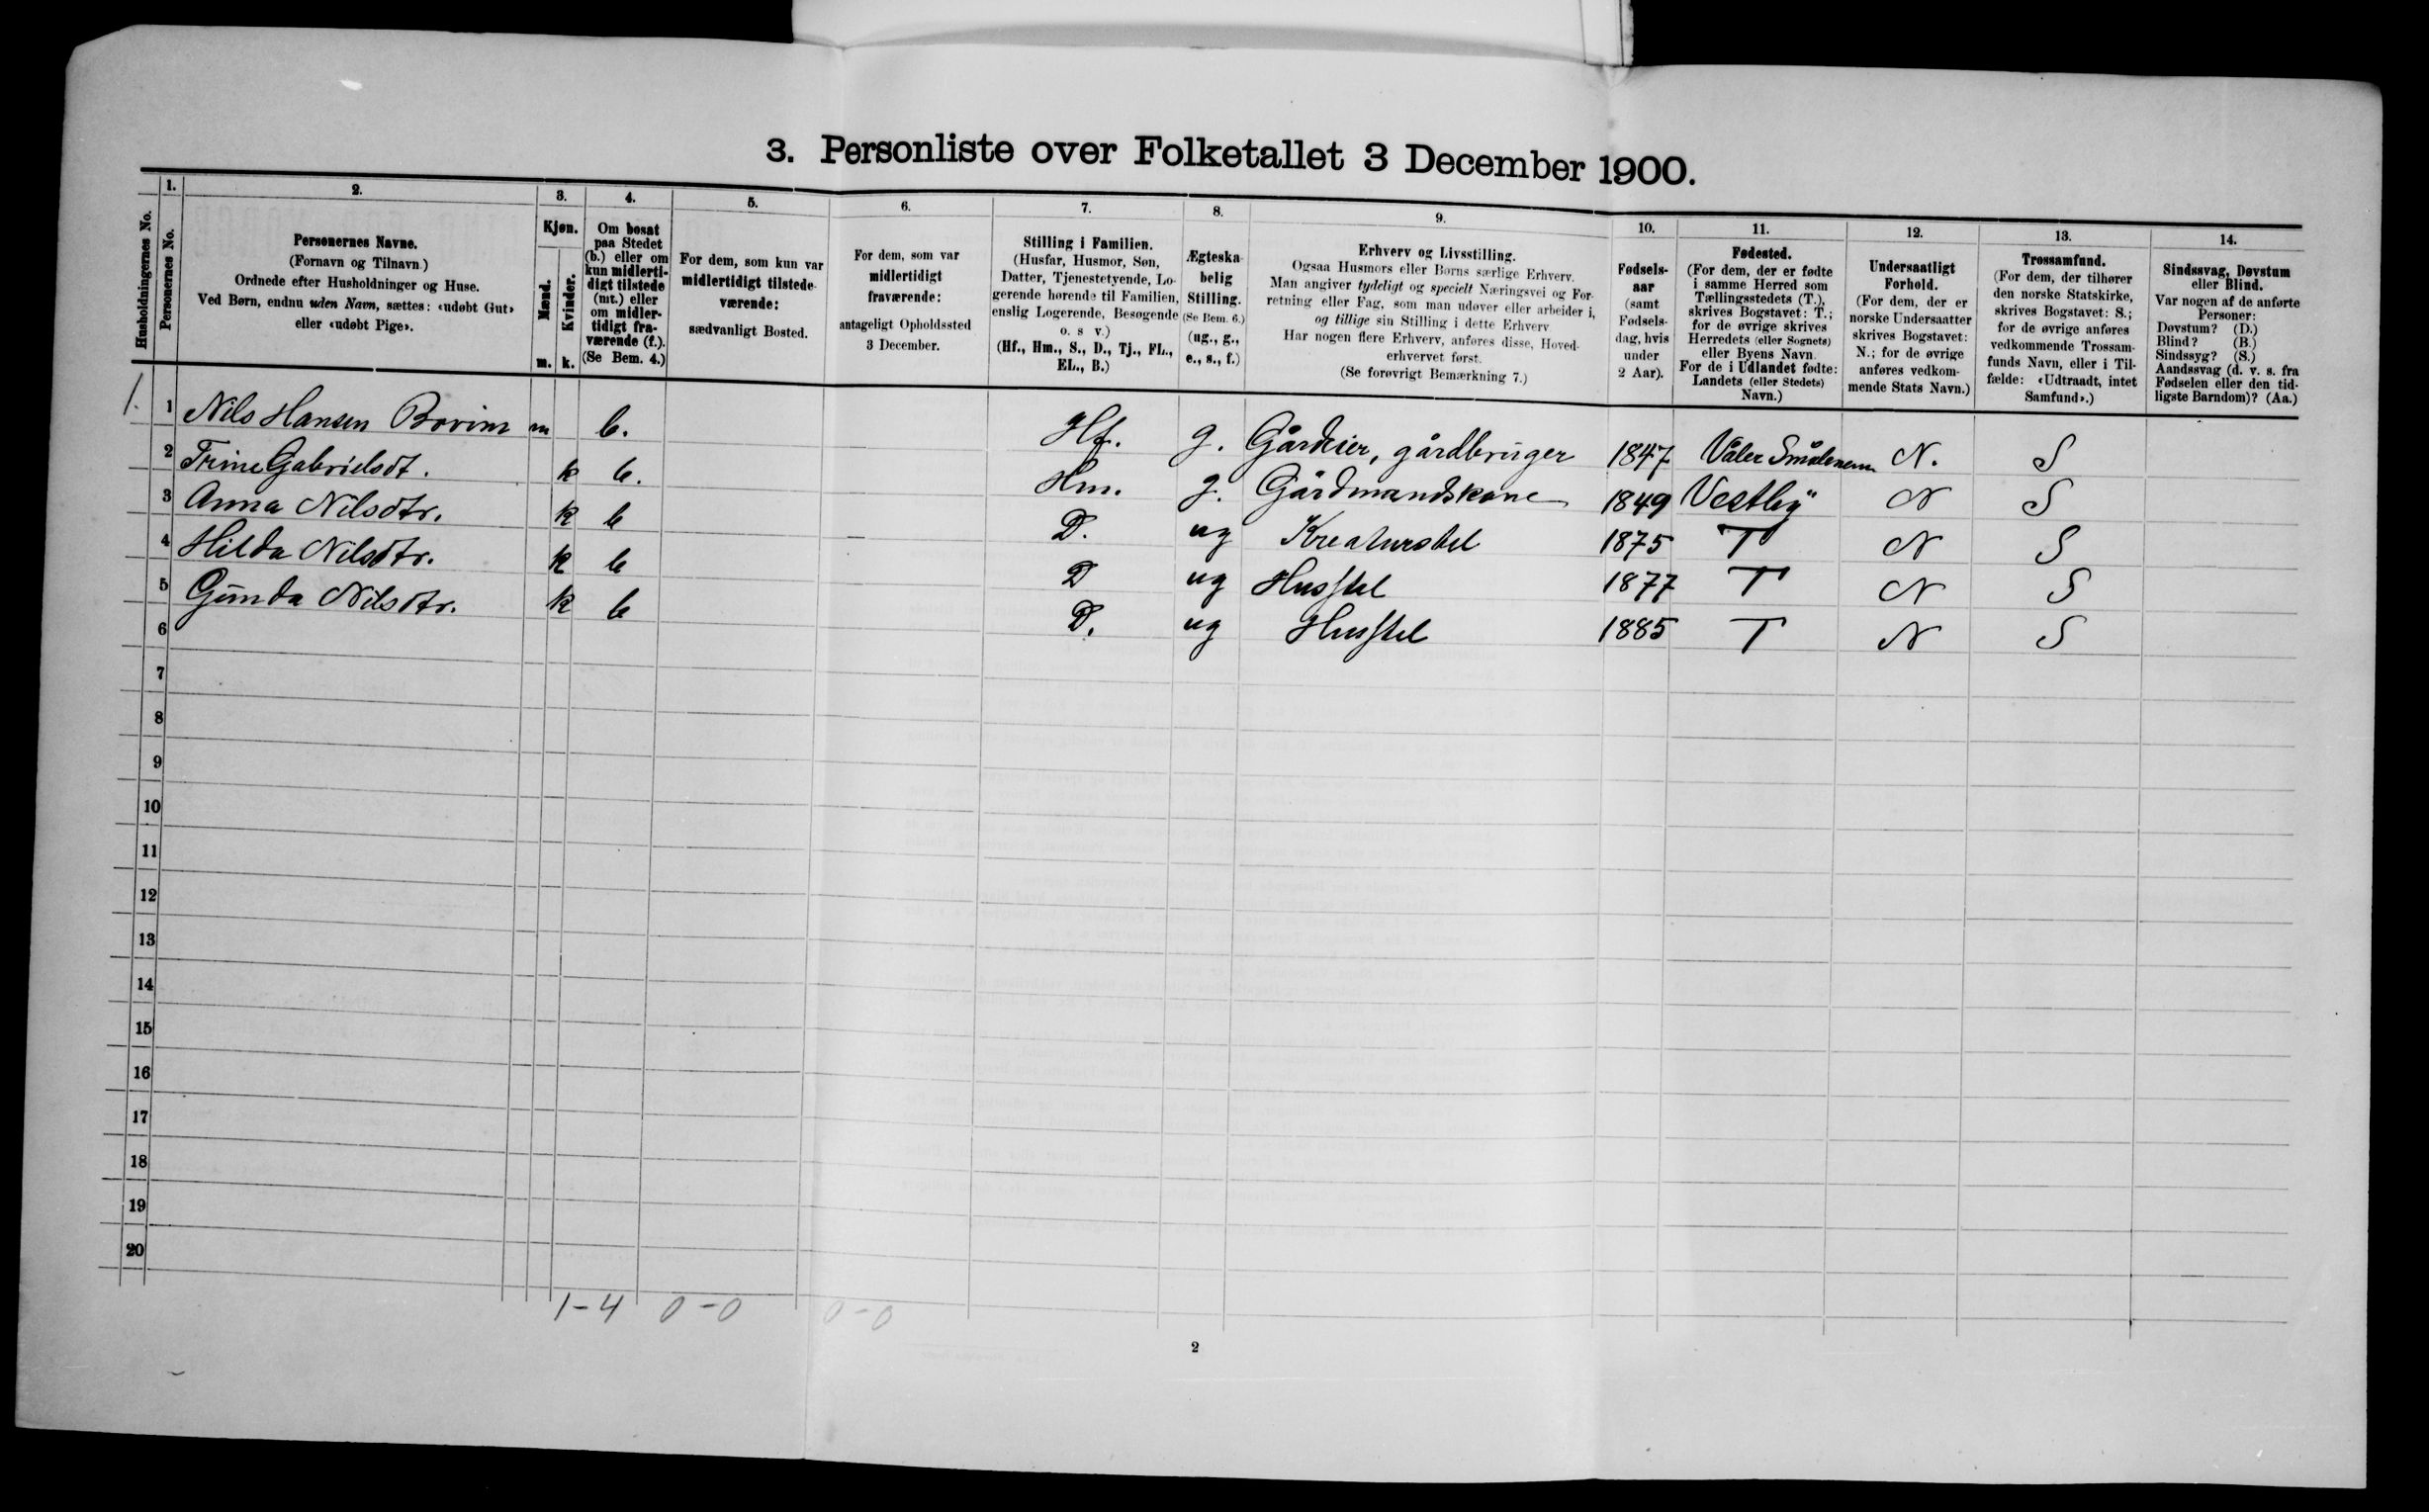 3. Personliste over Folketallet 3 December 1900.
Husholdningernes No.
1.
Personernes No.
2.
Personernes Navne.
(Fornavn og Tilnavn.)
Ordnede efter Husholdninger og Huse.
Ved Børn, endnu uden Navn, sættes: «udøbt Gut»
eller «udøbt Pige».
3.
Kjøn.
Mænd.
m.
Kvinder.
k.
4.
Om bosat
paa Stedet
(b.) eller om
kun midlerti-
digt tilstede
(mt.) eller
om midler-
tidigt fra-
værende (f.).
(Se Bem. 4.)
5.
For dem, som kun var
midlertidigt tilstede-
værende:
sædvanligt Bosted.
6.
For dem, som var
midlertidigt
fraværende:
antageligt Opholdssted
3 December.
7.
Stilling i Familien.
(Husfar, Husmor, Søn,
Datter, Tjenestetyende, Lo-
gerende hørende til Familien,
enslig Logerende, Besøgende
o. s v.)
(Hf., Hm., S., D., Tj., FL.,
EL., B.)
8.
Ægteska-
belig
Stilling.
(Se Bem. 6.)
(ug., g.,
e., s., f.)
9.
Erhverv og Livsstilling.
Ogsaa Husmors eller Børns særlige Erhverv.
Man angiver tydeligt og specielt Næringsvei og For-
retning eller Fag, som man udøver eller arbeider i,
og tillige sin Stilling i dette Erhverv
Har nogen flere Erhverv, anføres disse, Hoved-
erhvervet først.
(Se forøvrigt Bemærkning 7.)
10.
Fødsels-
aar
(samt
Fødsels-
dag, hvis
under
2 Aar).
11.
Fødested.
(For dem, der er fødte
i samme Herred som
Tællingsstedets (T.),
skrives Bogstavet: T.;
for de øvrige skrives
Herredets (eller Sognets)
eller Byens Navn.
For de i Udlandet fødte:
Landets (eller Stedets)
Navn.)
12.
Undersaatligt
Forhold.
(For dem, der er
norske Undersaatter
skrives Bogstavet:
N.; for de øvrige
anføres vedkom-
mende Stats Navn.)
13.
Trossamfund.
(For dem, der tilhører
den norske Statskirke,
skrives Bogstavet: S.;
for de øvrige anføres
vedkommende Trossam-
funds Navn, eller i Til-
fælde: «Udtraadt, intet
Samfund».)
14.
Sindssvag, Døvstum
eller Blind.
Var nogen af de anførte
Personer:
Døvstum? (D.)
Blind? (B.)
Sindssyg? (S.)
Aandssvag (d. v. s. fra
Fødselen eller den tid-
ligste Barndom)? (Aa.)
1. 1 Nils Hansen Bovim m b. Hf. g. Gårdeier, gårdbruger 1847 Våler Smålenene N. S
2 Trine Gabrielsdt. k b. Hm. g. Gårdmandskone 1849 Vestby N S
3 Anna Nilsdtr. k b D. ug Kreaturstel 1875 T N S
4 Hilda Nilsdtr. k b D ug Husstel 1877 T N S
5 Gunda Nilsdtr. k b D. ug Husstel 1885 T N S
6
7
8
9
10
11
12
13
14
15
16
17
18
19
20
1-4 0-0 0-0
2